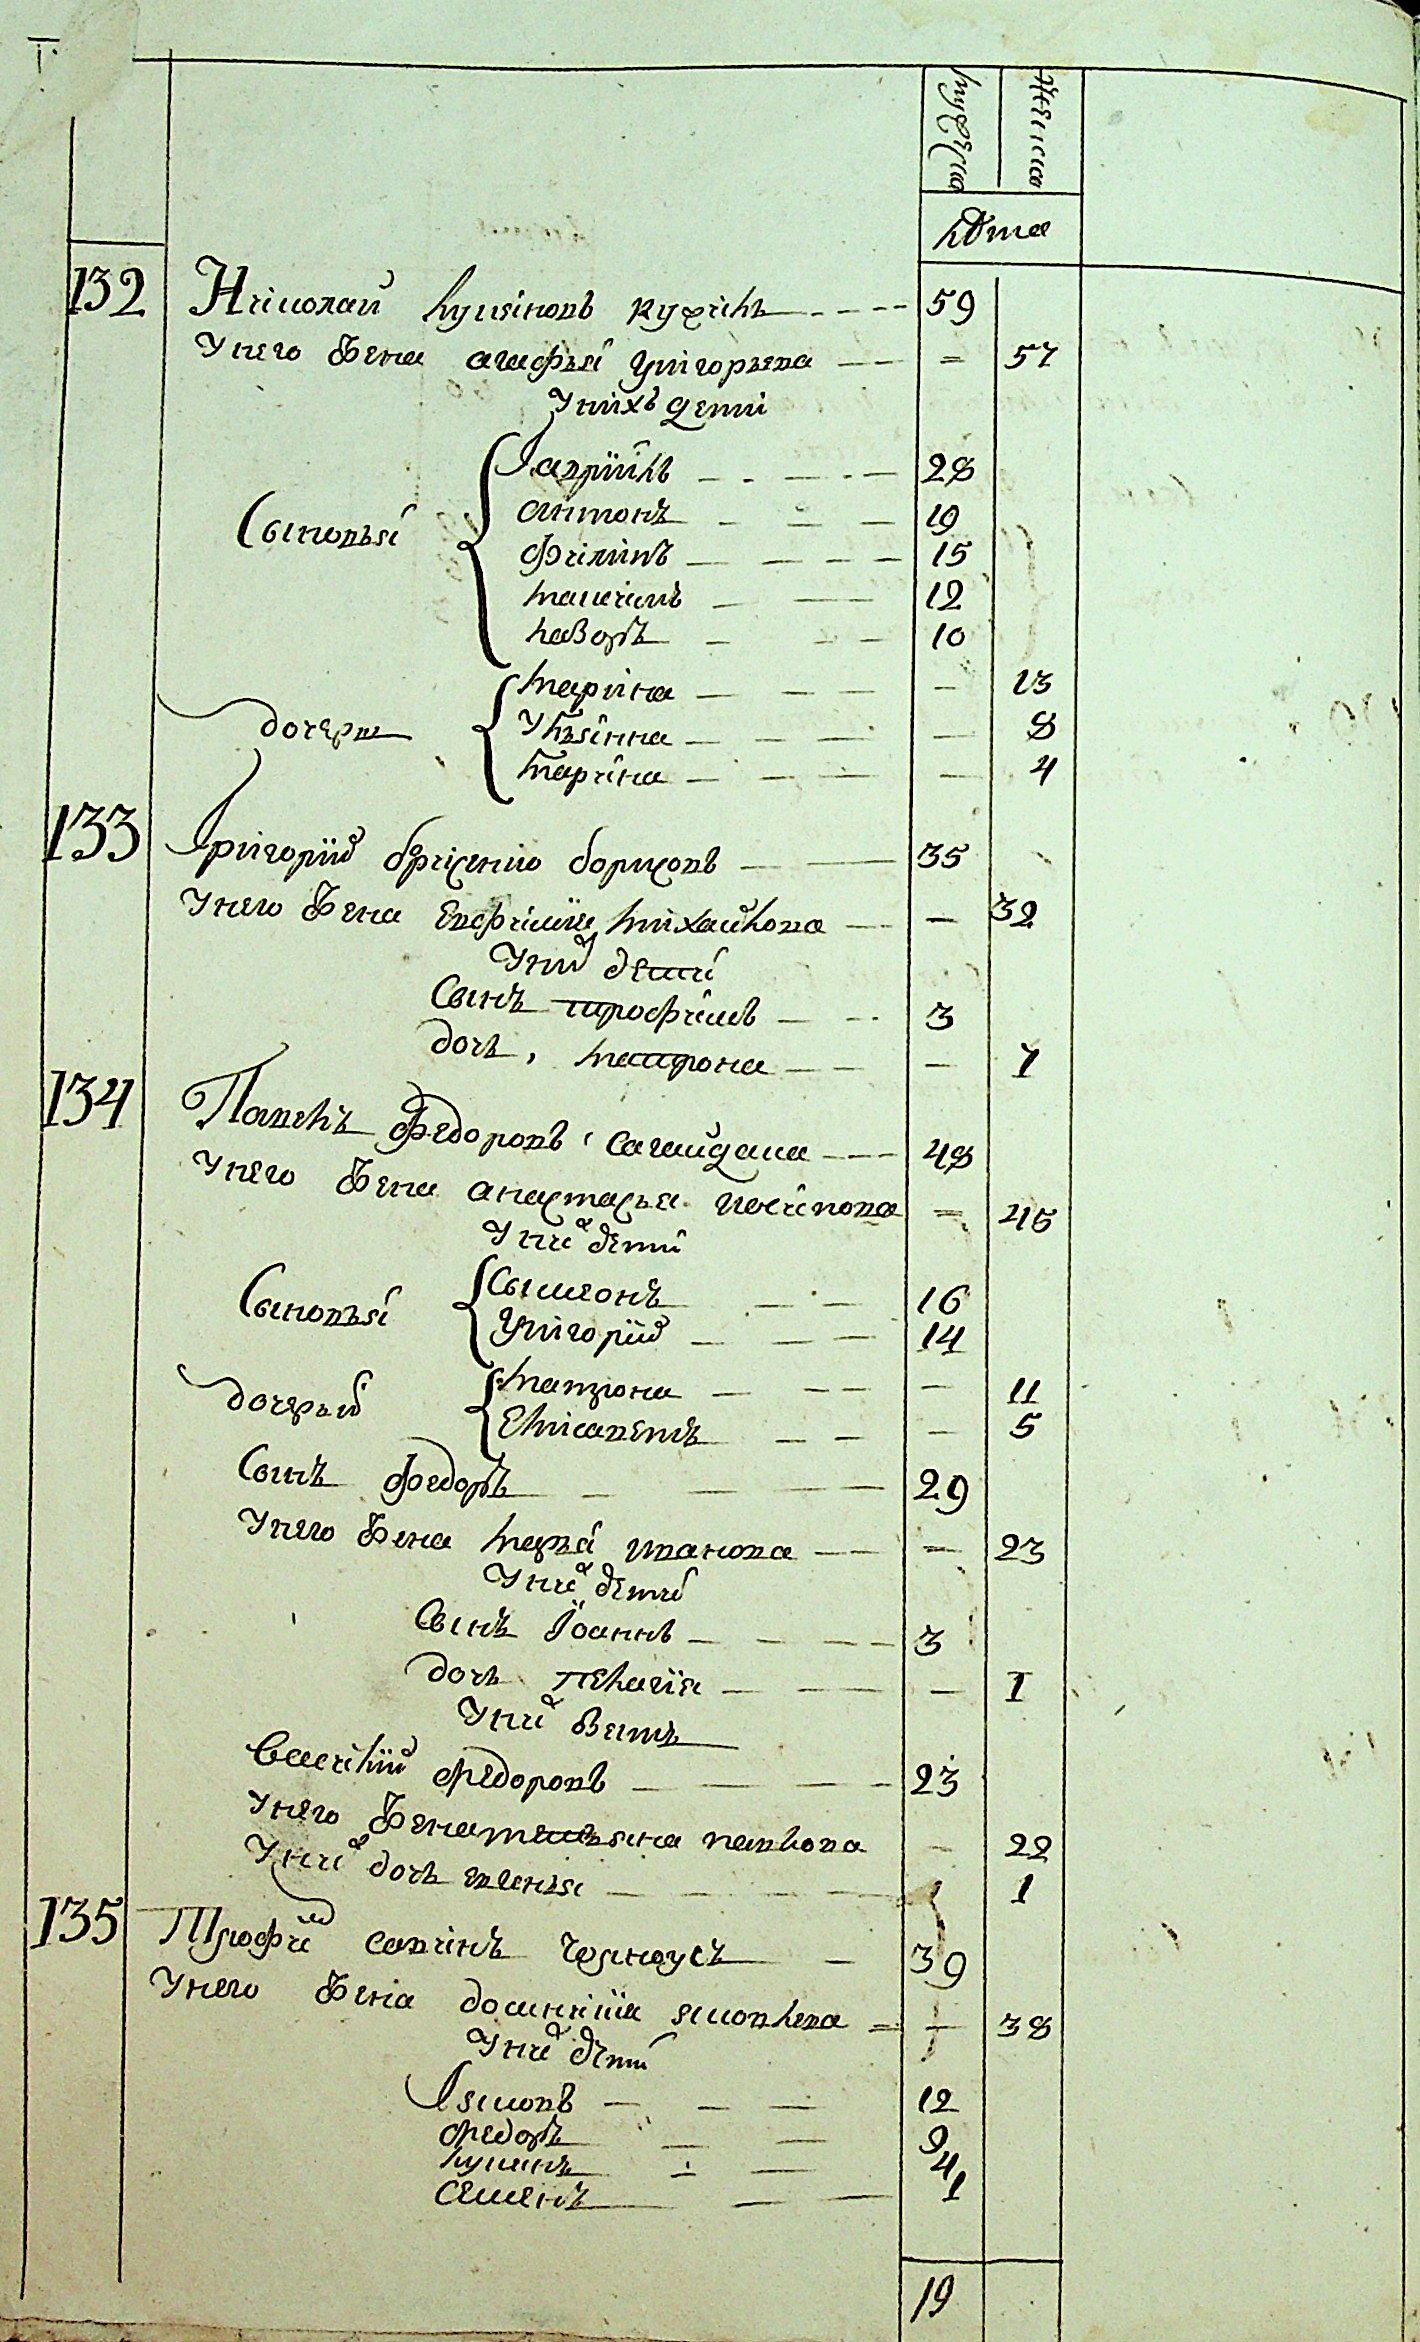 мужеска
женска
лѣта
132 Николай Кузминовъ 59
У него жена агафья григорьева 57
У нихъ дети
Сыновья
гаврiилъ 28
антонъ 19
филипъ 15
максимъ 12
назоръ 10
дочери
марина 13
Ульянна 8
марина 4
133 Григорiй борисовъ 35
У него жена Евфимiя михайлова 32
У них дети
Сынъ трофимъ 3
дочь, матрона 7
134 Павелъ федоровъ сагайдака 48
У него жена анастасья осипова 45
У них дети
Сыновья
Сымеонъ 16
григорiй 14
дочерьи
матрона 11
Елисаветъ 5
Сынъ федоръ 29
У него жена марья иванова 23
У них дети
Сынъ Iоаннъ 3
дочь пелагiя 1
У них зеть
Василiй федоровъ 23
У него жена татьяна павлова 22
У них дочь евгенья 1
135 Трофим савинъ черноусъ 39
У него жена домникiя яковлева 38
У них дети
яковъ 12
федоръ 9
лукианъ 4
семенъ 1
19